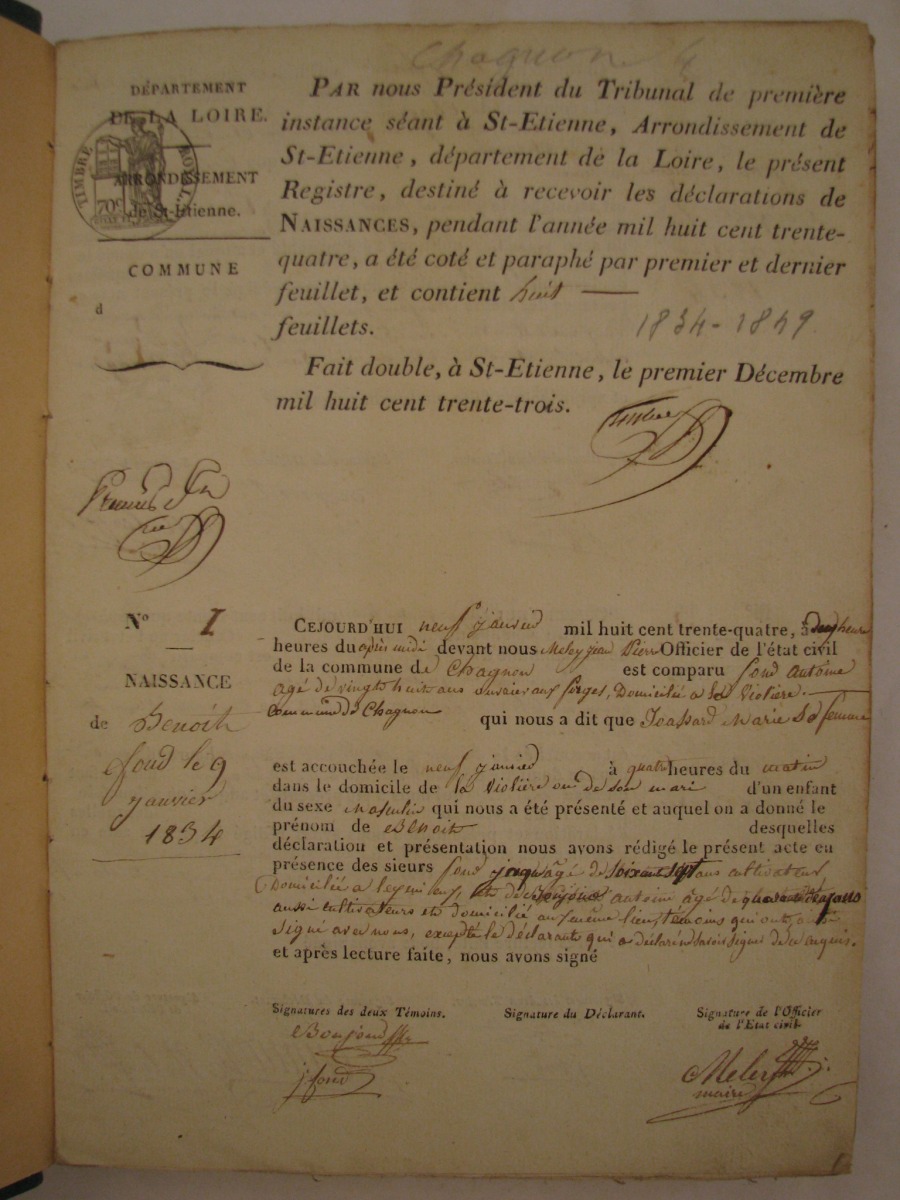 Chagnon
DÉPARTEMENT
DE LA LOIRE.
TIMBRE ROYAL
70c
ARRONDISSEMENT
de St-Etienne.
COMMUNE
d
PAR nous Président du Tribunal de première
instance séant à St-Etienne, Arrondissement de
St-Etienne, département de la Loire, le présent
Registre, destiné à recevoir les déclarations de
NAISSANCES, pendant l'année mil huit cent trente-
quatre, a été coté et paraphé par premier et dernier
feuillet, et contient huit
feuillets.
1834-1849
Fait double, à St-Etienne, le premier Décembre
mil huit cent trente-trois.
No 1
NAISSANCE
de Benoit
fond le 9
janvier
1834
CEJOURD'HUI neuf janvied mil huit cent trente-quatre, à
heures du après midi devant nous Meley jean Pierre Officier de l'état civil
de la commune de Chagnon est comparu fond antoine
agé de vingt huit ans ouvrier aux forges, Domicilié a La Violière.
Commune de Chagnon qui nous a dit que Joassard Marie Sa femme
est accouchée le neuf janvied à quatre heures du matin
dans le domicile de la Violière ou de son mari d'un enfant
du sexe Masculin qui nous a été présenté et auquel on a donné le
prénom de Benoit desquelles
déclaration et présentation nous avons rédigé le présent acte en
présence des sieurs fond jaque âgé de soixante sept ans cultivateur
Domiciliée a et de Bonjour antoine âgé de quarante ans
aussi cultivateurs et domicilié au même lieu, témoins qui ont
signé avec nous, excepté le déclarant qui a déclaré ne savoir signer de ce enquis.
et après lecture faite, nous avons signé
Signatures des deux Témoins. Signature du Déclarant. Signature de l'Officier
de l'Etat civil.
Bonjour
j fond
Meley
maire